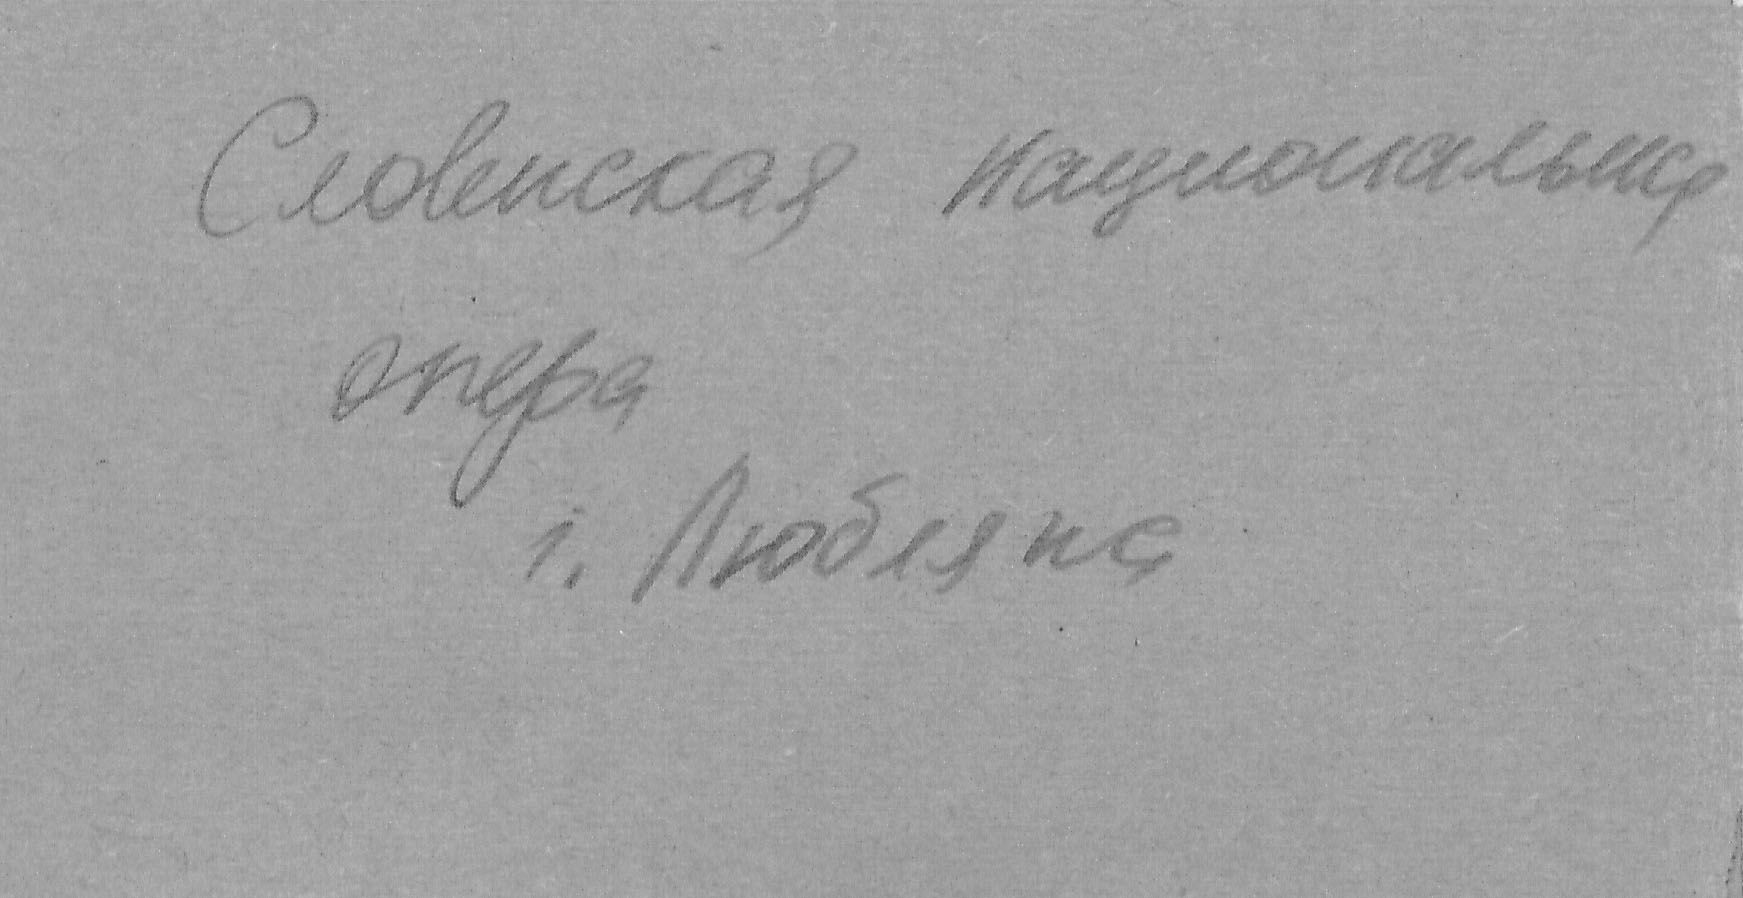 Словенская национальная
опера
г. Любляна